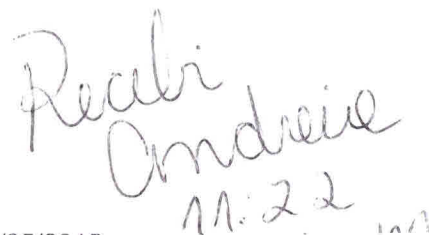 Recebi
Andreia
11:22